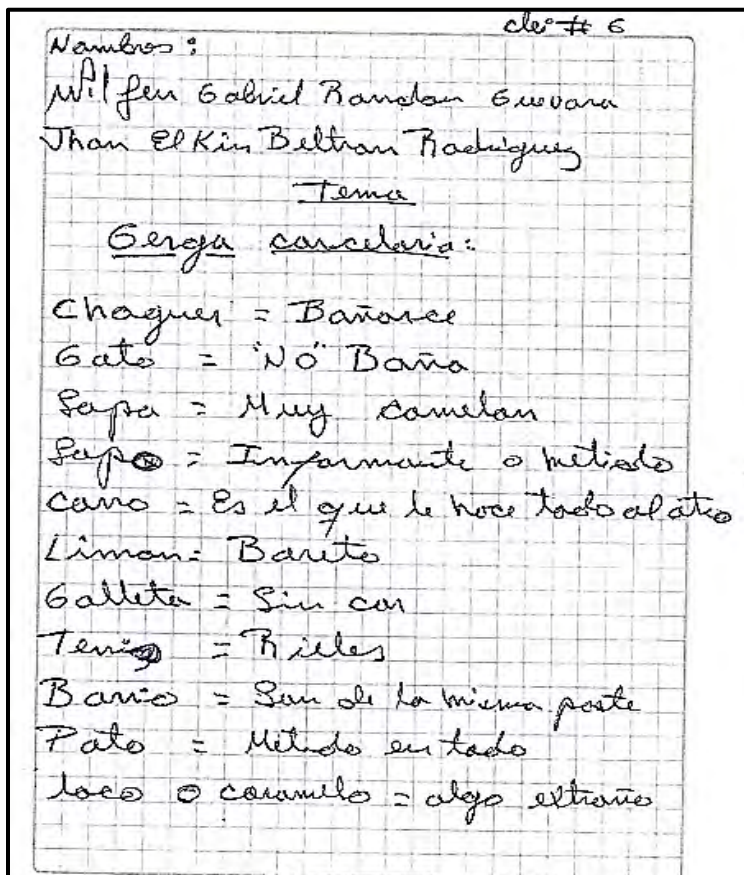 clei # 6
Nombres:
Wilfen Gabriel Rondon Guevara
Jhon Elkin Beltran Rodriguez
Tema
Gerga carcelaria:
Chaguer = Bañarce
Gato = "NO" Baña
Sapa = Muy
Sapo = Informante o metiodo
carro = Es el que le hace todo al otro
Limon = Bareto
Galleta = Sin
Tenis = Rieles
Barrio = Son de la misma parte
Pato = Metido en todo
loco o caramelo = algo extraño